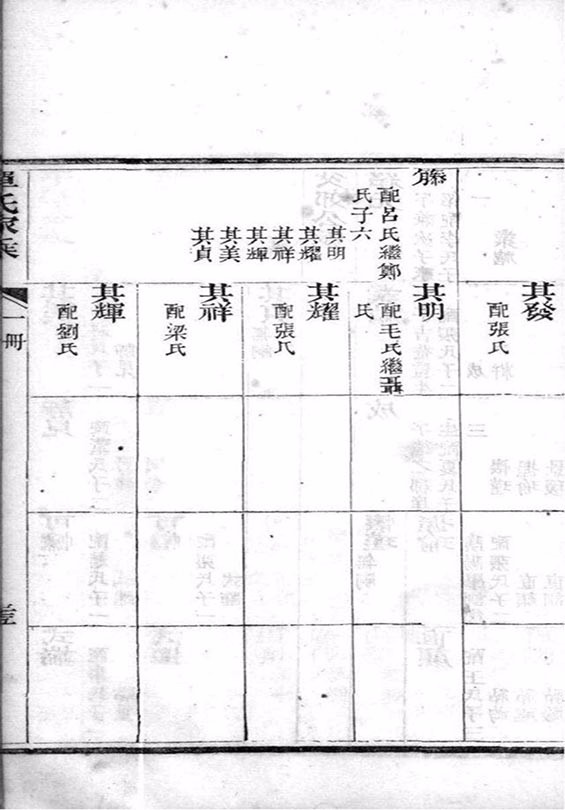 其發
配張氏
配呂氏繼鄭
氏子六
其明
其耀
其祥
其輝
其美
其貞
其明
配毛氏繼聶
氏
其耀
配張氏
其祥
配梁氏
其輝
配劉氏
氏家乘
一冊